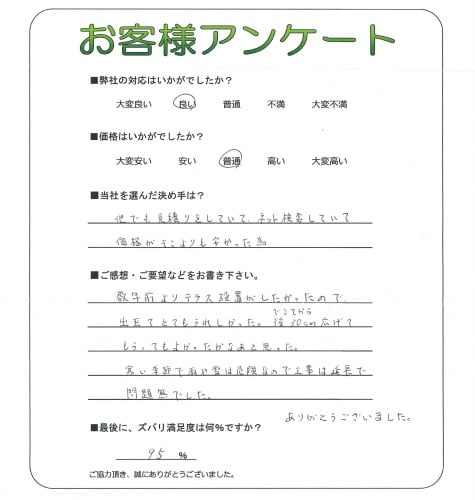 お客様アンケート
■弊社の対応はいかがでしたか？
大変良い 良い 普通 不満 大変不満
■価格はいかがでしたか？
大変安い 安い 普通 高い 大変高い
■当社を選んだ決め手は？
他でも見積りをしていて、ネット検索していて
価格がそこよりも安かった為
■ご感想・ご要望などをお書き下さい。
数年前よりテラス設置がしたかったので、
出来てとてもうれしかった。できてから後30cm広げて
もらってもよかったかなあと思った。
寒い季節で雨や雪は危険なので工事は延長で
問題無でした。
ありがとうございました。
■最後に、ズバリ満足度は何％ですか？
95 %
ご協力頂き、誠にありがとうございました。